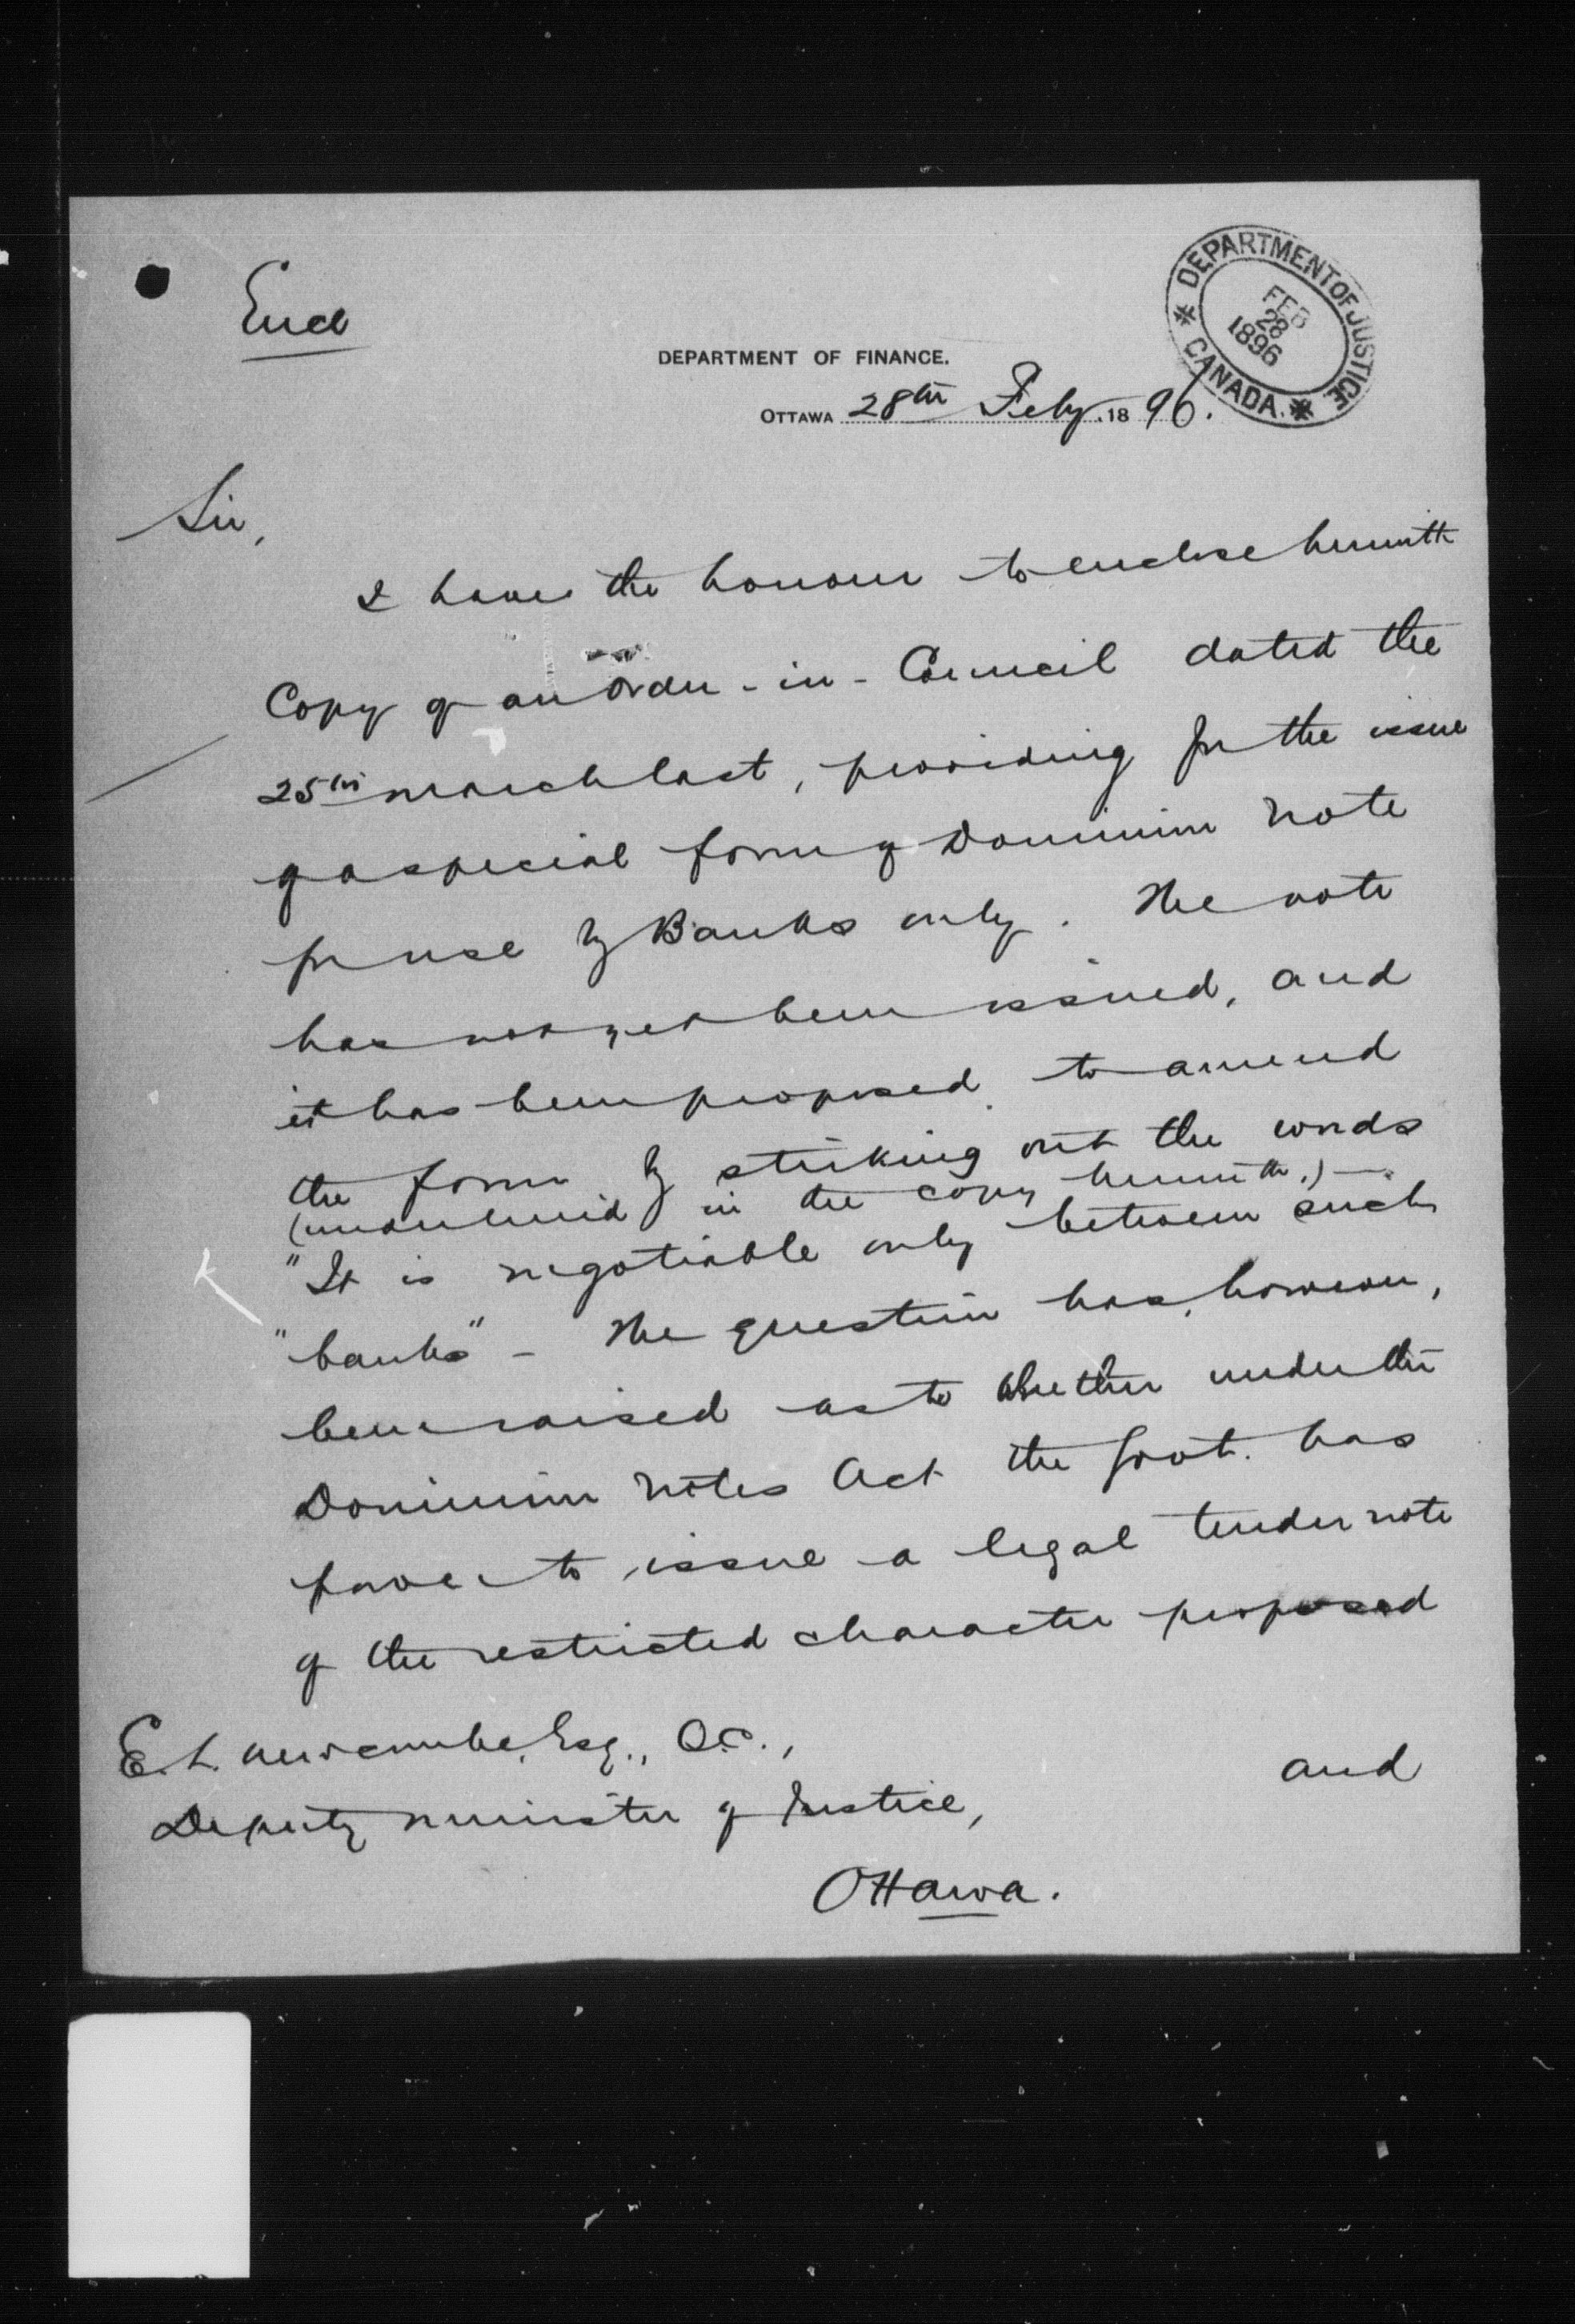 Encl
DEPARTMENT OF JUSTICE
CANADA.
FEB
28
1896
DEPARTMENT OF FINANCE.
OTTAWA 28th Feby. 1896.
Sir,
I have the honour to enclose herewith
Copy of an Order-in-Council dated the
25th March last, providing for the issue
of a special form of Dominion note
for use by Banks only. The note
has not yet been issued, and
it has been proposed to amend
the form by striking out the words
(underlined in the copy herewith.)—
"It is negotiable only between such
"banks" - The question has, however,
been raised as to whether under the
Dominion Notes Act the Govt. has
power to issue a legal tender note
of the restricted character proposed
E. L. Newcombe, Esq., Q.C.,
and
Deputy Minister of Justice,
Ottawa.